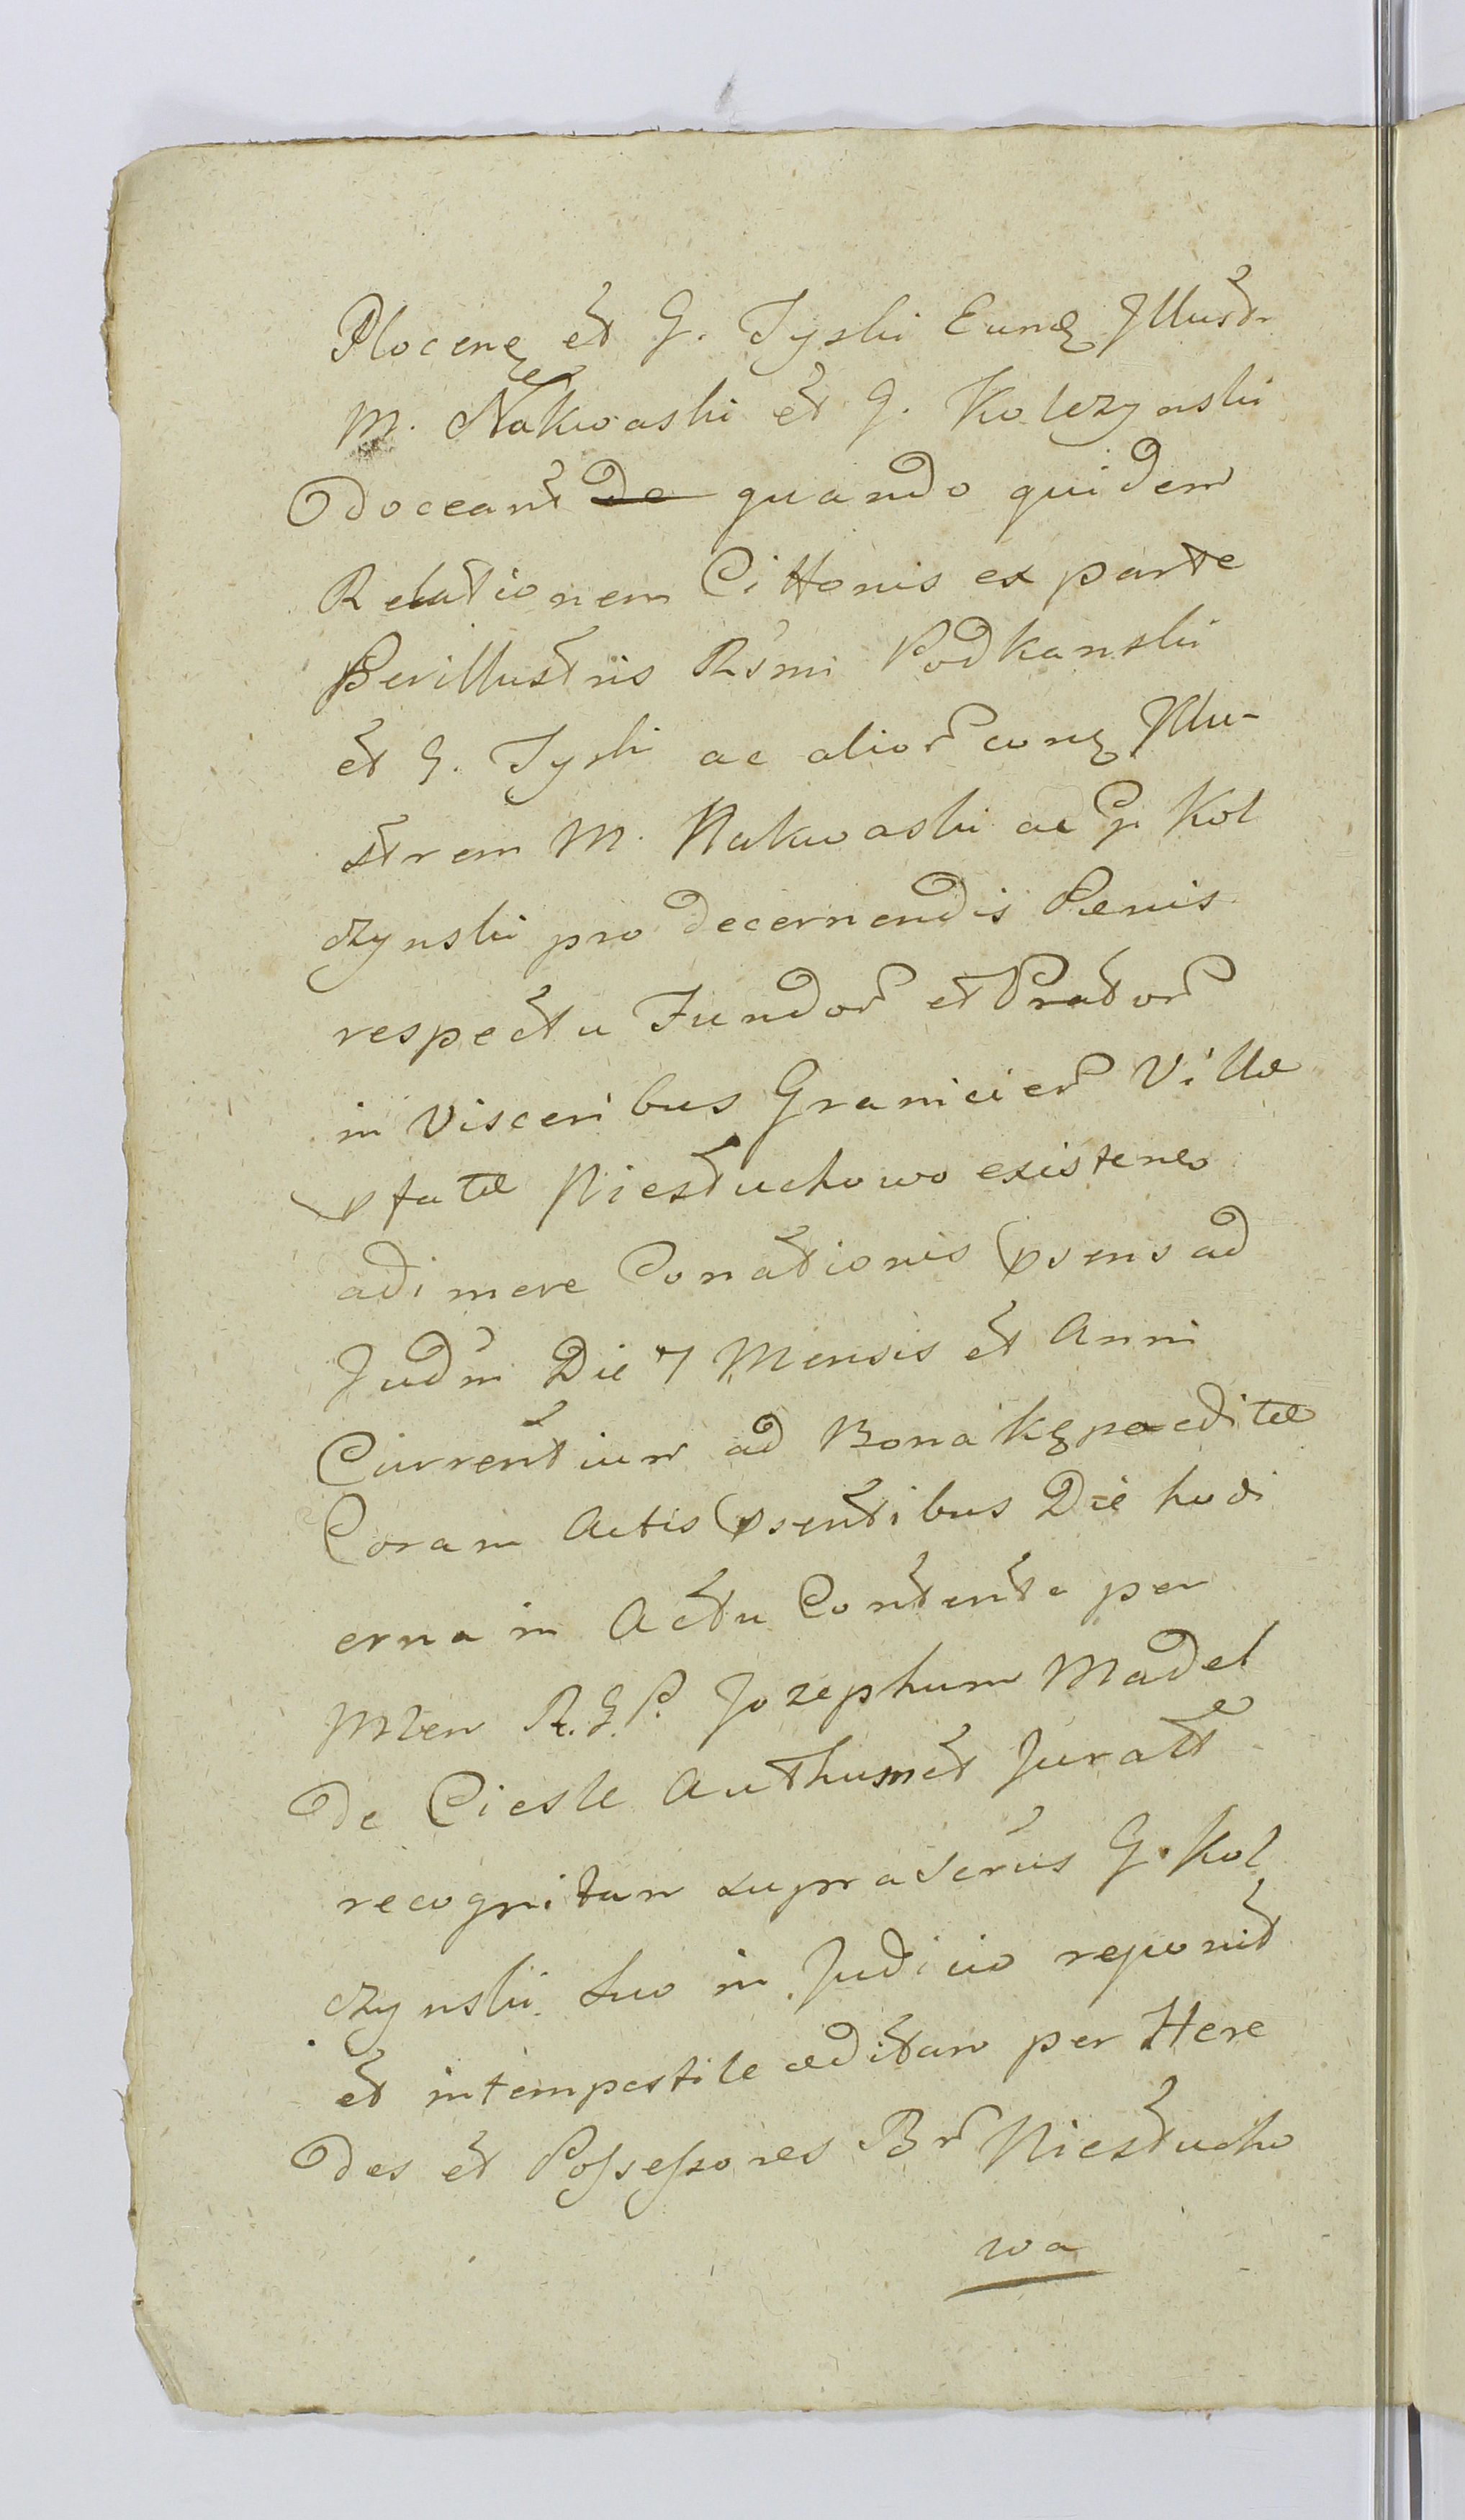 Plocenę et G. Tyski Eunę Jllustr
M. Nakwaski et G. Kolczynski
doceant de quando quidem
Relationem Cittonis ex parte
Perillustris Rsmi Podkanski
et G. Tyski ac alior cunę Jllu-
strem M. Nakwaski ac G Kol
czynski pro decernendis Penis
respectu Fundor et Prator
in visceribus Granicier Villæ
pfatæ Niestuchowo existen
adimere Conationis psens ad
Judm Die 7 Mensis et Anni
Currentium ad Bona Kępa editæ
Coram Actis psentibus Die hodi
erna in Actu Contente per
Mlen R.G.P. Jozephum Madel
de Ciesle Authum et Juratt
recognitam supra scrus G. Kol
czynski suo in Judicio reponit
et intempestile æditam per Here
des et Possessores Br Niestucho
wa